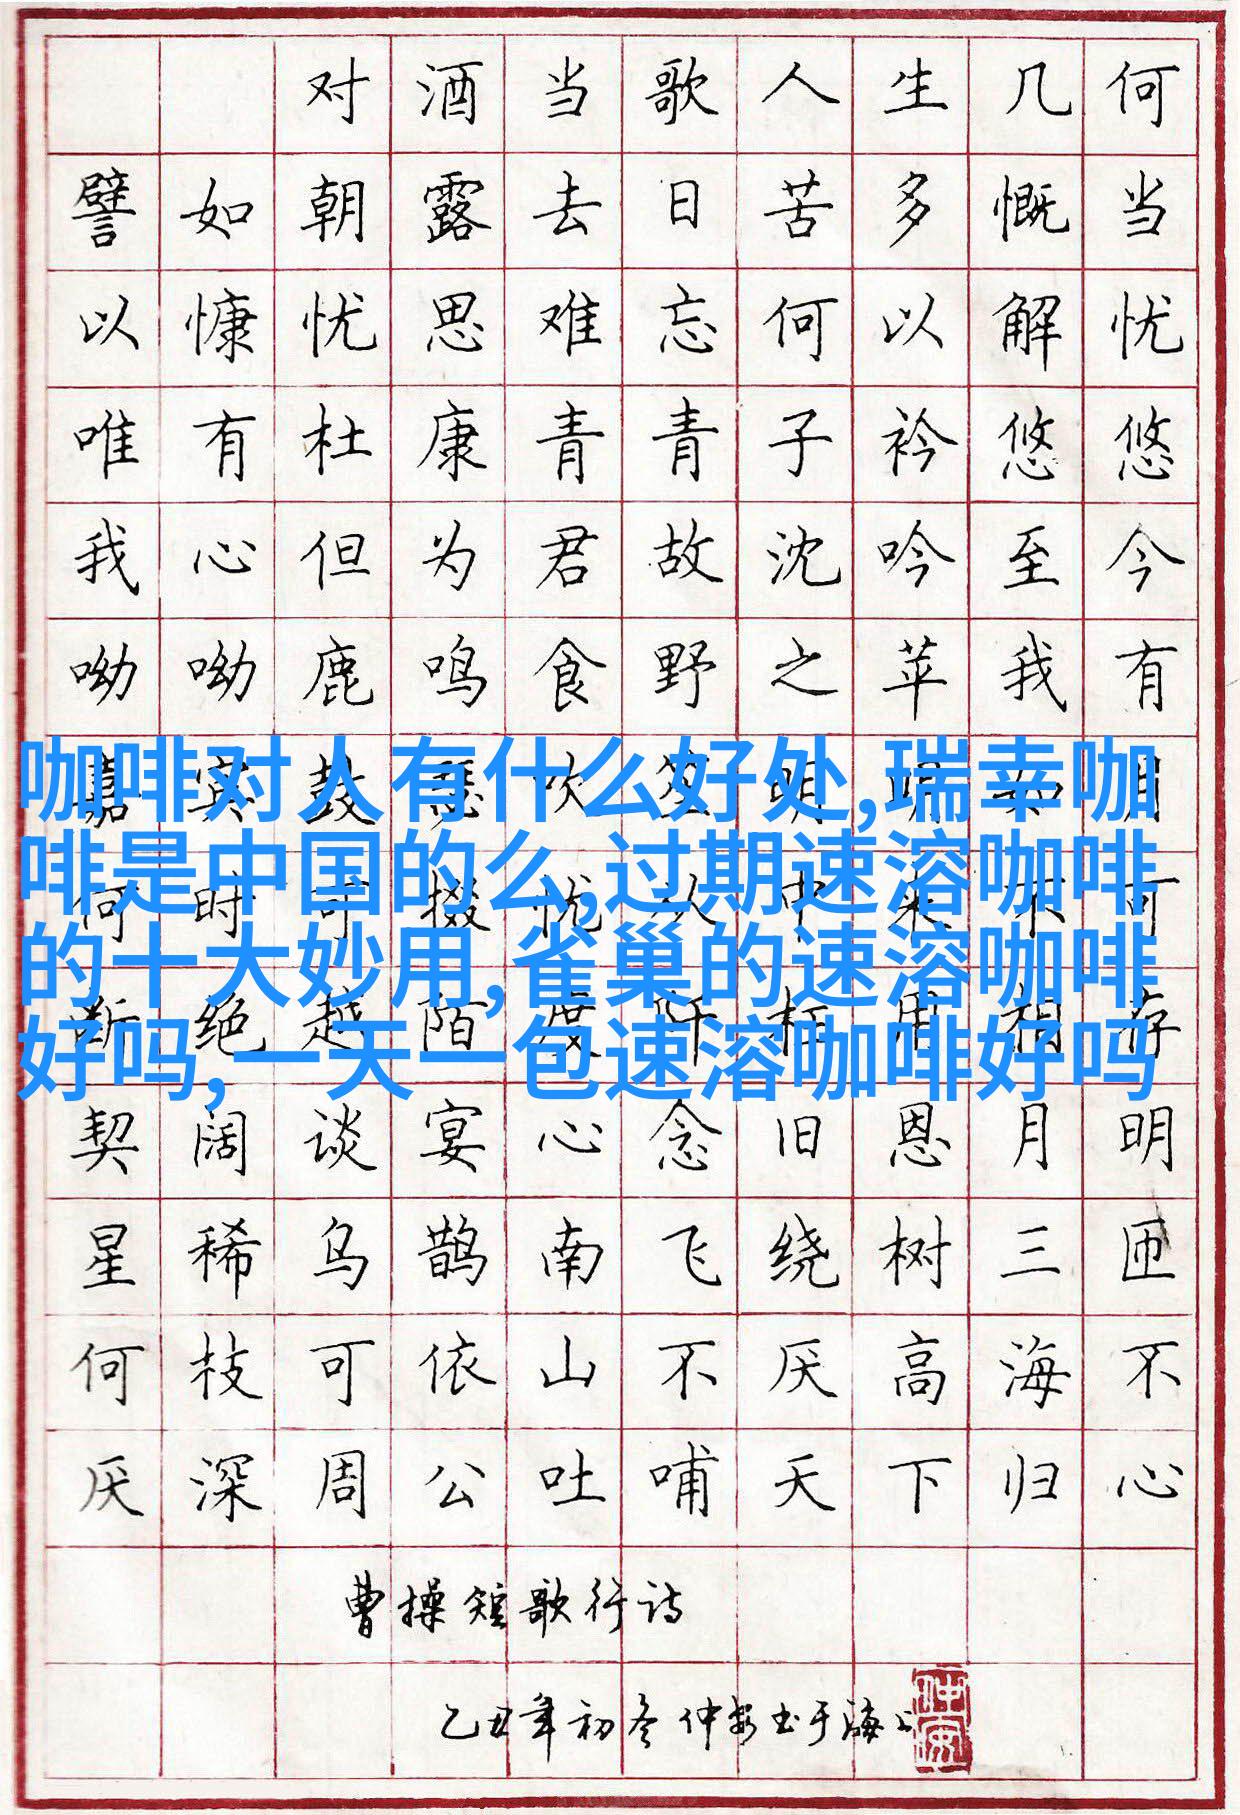 对酒当歌人生几何
譬如朝露去日苦多慨当
以慷忧思难忘何以解忧
唯有杜康青青子衿悠悠
我心但为君故沈吟至今
呦呦鹿鸣食野之苹我有
嘉宾鼓瑟吹笙明明如月
何时可掇忧从中来不可
断绝越陌度阡枉用相存
契阔谈宴心念旧恩月明
星稀乌鹊南飞绕树三匝
何枝可依山不厌高海不
厌深周公吐哺天下归心
曹操短歌行诗
乙丑年初冬仲安书于海上
仲安
咖啡对人有什么好处,瑞幸咖
啡是中国的么,过期速溶咖啡
的十大妙用,雀巢的速溶咖啡
好吗,一天一包速溶咖啡好吗